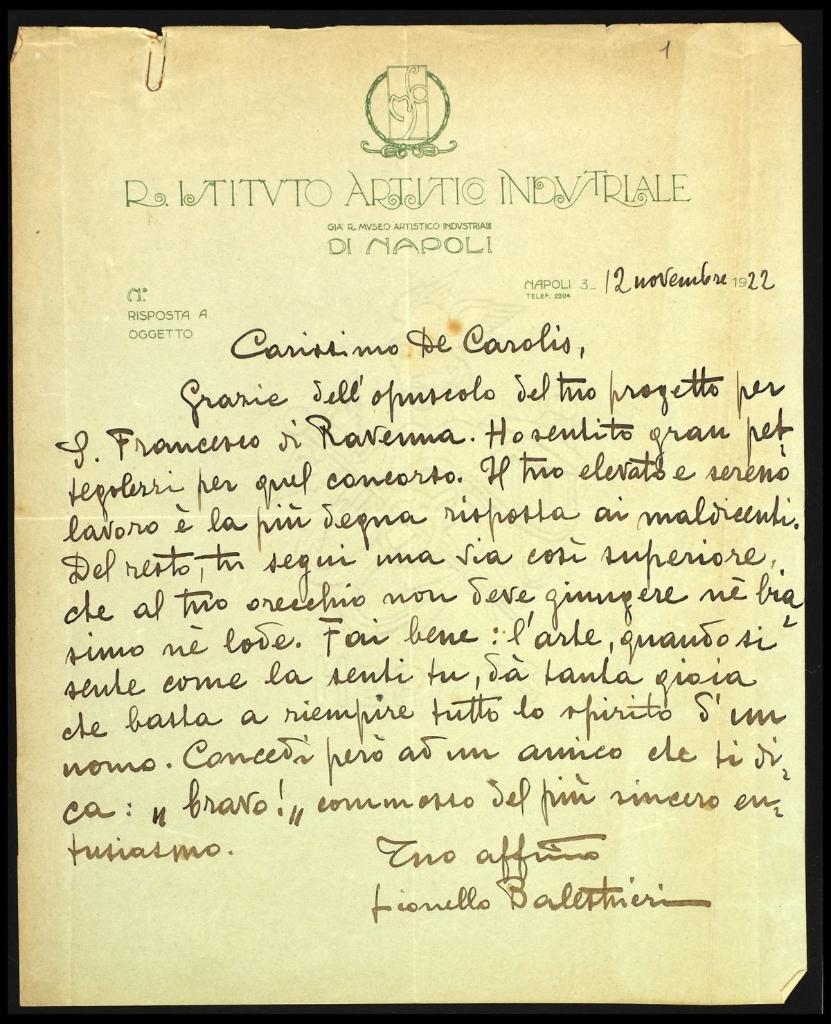 1
R. ISTITVTO ARTISTICO INDVSTRIALE
GIA' R. MVSEO ARTISTICO INDVSTRIALE
DI NAPOLI
NAPOLI 3_ 12 novembre 1922
TELEF. 2204
N.°
RISPOSTA A
OGGETTO
Carissimo De Carolis,
Grazie dell'opuscolo del tuo progetto per
S. Francesco di Ravenna. Ho sentito gran pet-
tegolezzi per quel concorso. Il tuo elevato e sereno
lavoro è la più degna risposta ai maldicenti.
Del resto, tu segui una via così superiore,
che al tuo orecchio non deve giungere nè bia-
simo nè lode. Fai bene: l'arte, quando si
sente come la senti tu, dà tanta gioia
che basta a riempire tutto lo spirito d'un
uomo. Concedi però ad un amico che ti di-
ca: „bravo!„ commosso del più sincero en-
tusiasmo.
Tuo affmo
Lionello Balestrieri